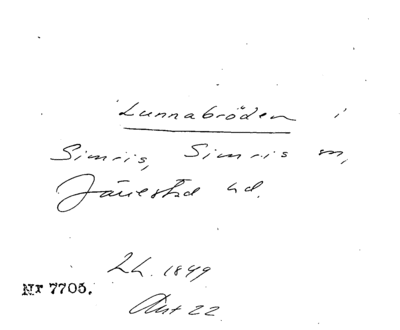 Lunnabröden i
Simris, Simris sn,
Järrestad hd.
LL. 1849
Nr 7705.
Aust 22